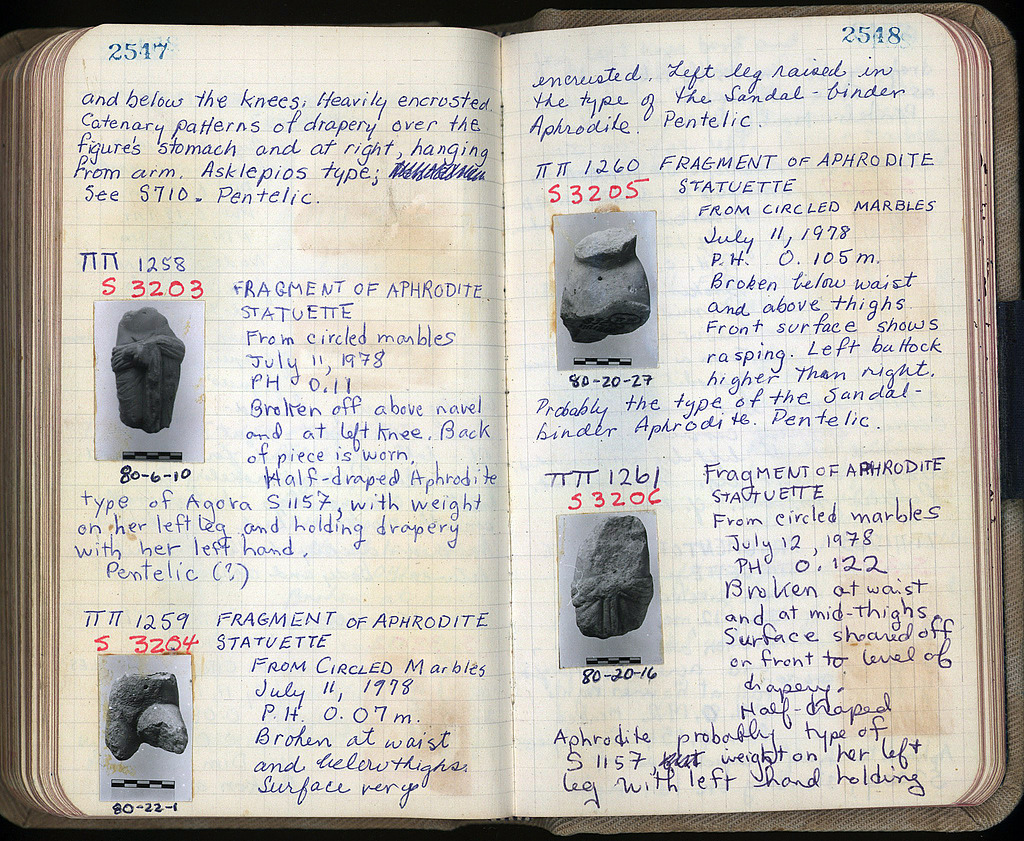 2517
and below the knees. Heavily encrusted.
Catenary patterns of drapery over the
figure's stomach and at right, hanging
from arm. Asklepios type;
See S710. Pentelic.
ΠΠ 1258
S 3203
FRAGMENT OF APHRODITE
STATUETTE
From circled marbles
July 11, 1978
PH 0.11
Broken off above navel
and at left knee. Back
of piece is worn.
80-6-10
Half-draped Aphrodite
type of Agora S1157, with weight
on her left leg and holding drapery
with her left hand.
Pentelic (?)
ΠΠ 1259 FRAGMENT OF APHRODITE
S 3204 STATUETTE
FROM CIRCLED Marbles
July 11, 1978
P.H. 0.07m.
Broken at waist
and below thighs.
Surface very
80-22-1
2518
encrusted. Left leg raised in
the type of the Sandal-binder
Aphrodite. Pentelic.
ΠΠ 1260 FRAGMENT OF APHRODITE
S 3205 STATUETTE
FROM CIRCLED MARBLES
July 11, 1978
P.H. 0.105m.
Broken below waist
and above thighs.
Front surface shows
rasping. Left buttock
higher than right.
80-20-27
Probably the type of the Sandal-
binder Aphrodite. Pentelic.
ΠΠ 1261 FragMENT OF APHRODITE
S 3206 STATUETTE
From circled marbles
July 12, 1978
PH 0.122
Broken at waist
and at mid-thighs.
Surface sheared off
on front to level of
drapery.
80-20-16
Half-draped
Aphrodite probably type of
S 1157, weight on her left
leg with left hand holding